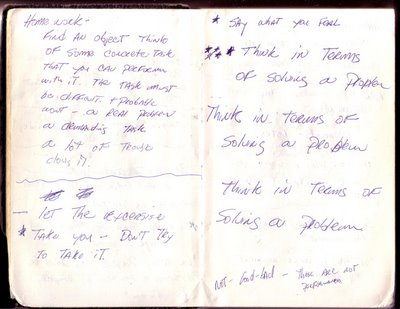 Home work -
Find An object Think
OF Some Concrete Task
That you can perform
with it. The Task must
be difficult. + probable
want - a Real problem
a demanding Task
a lot of Trouble
doing it.
let The excersise
* Take you - Don't Try
to Take it.
* Say what you Feel
*** Think in Terms
OF Solving a Problem
Think in Terms OF
Solving a problem
Think in Terms OF
Solving a problem
Not - Good-bad - These are not